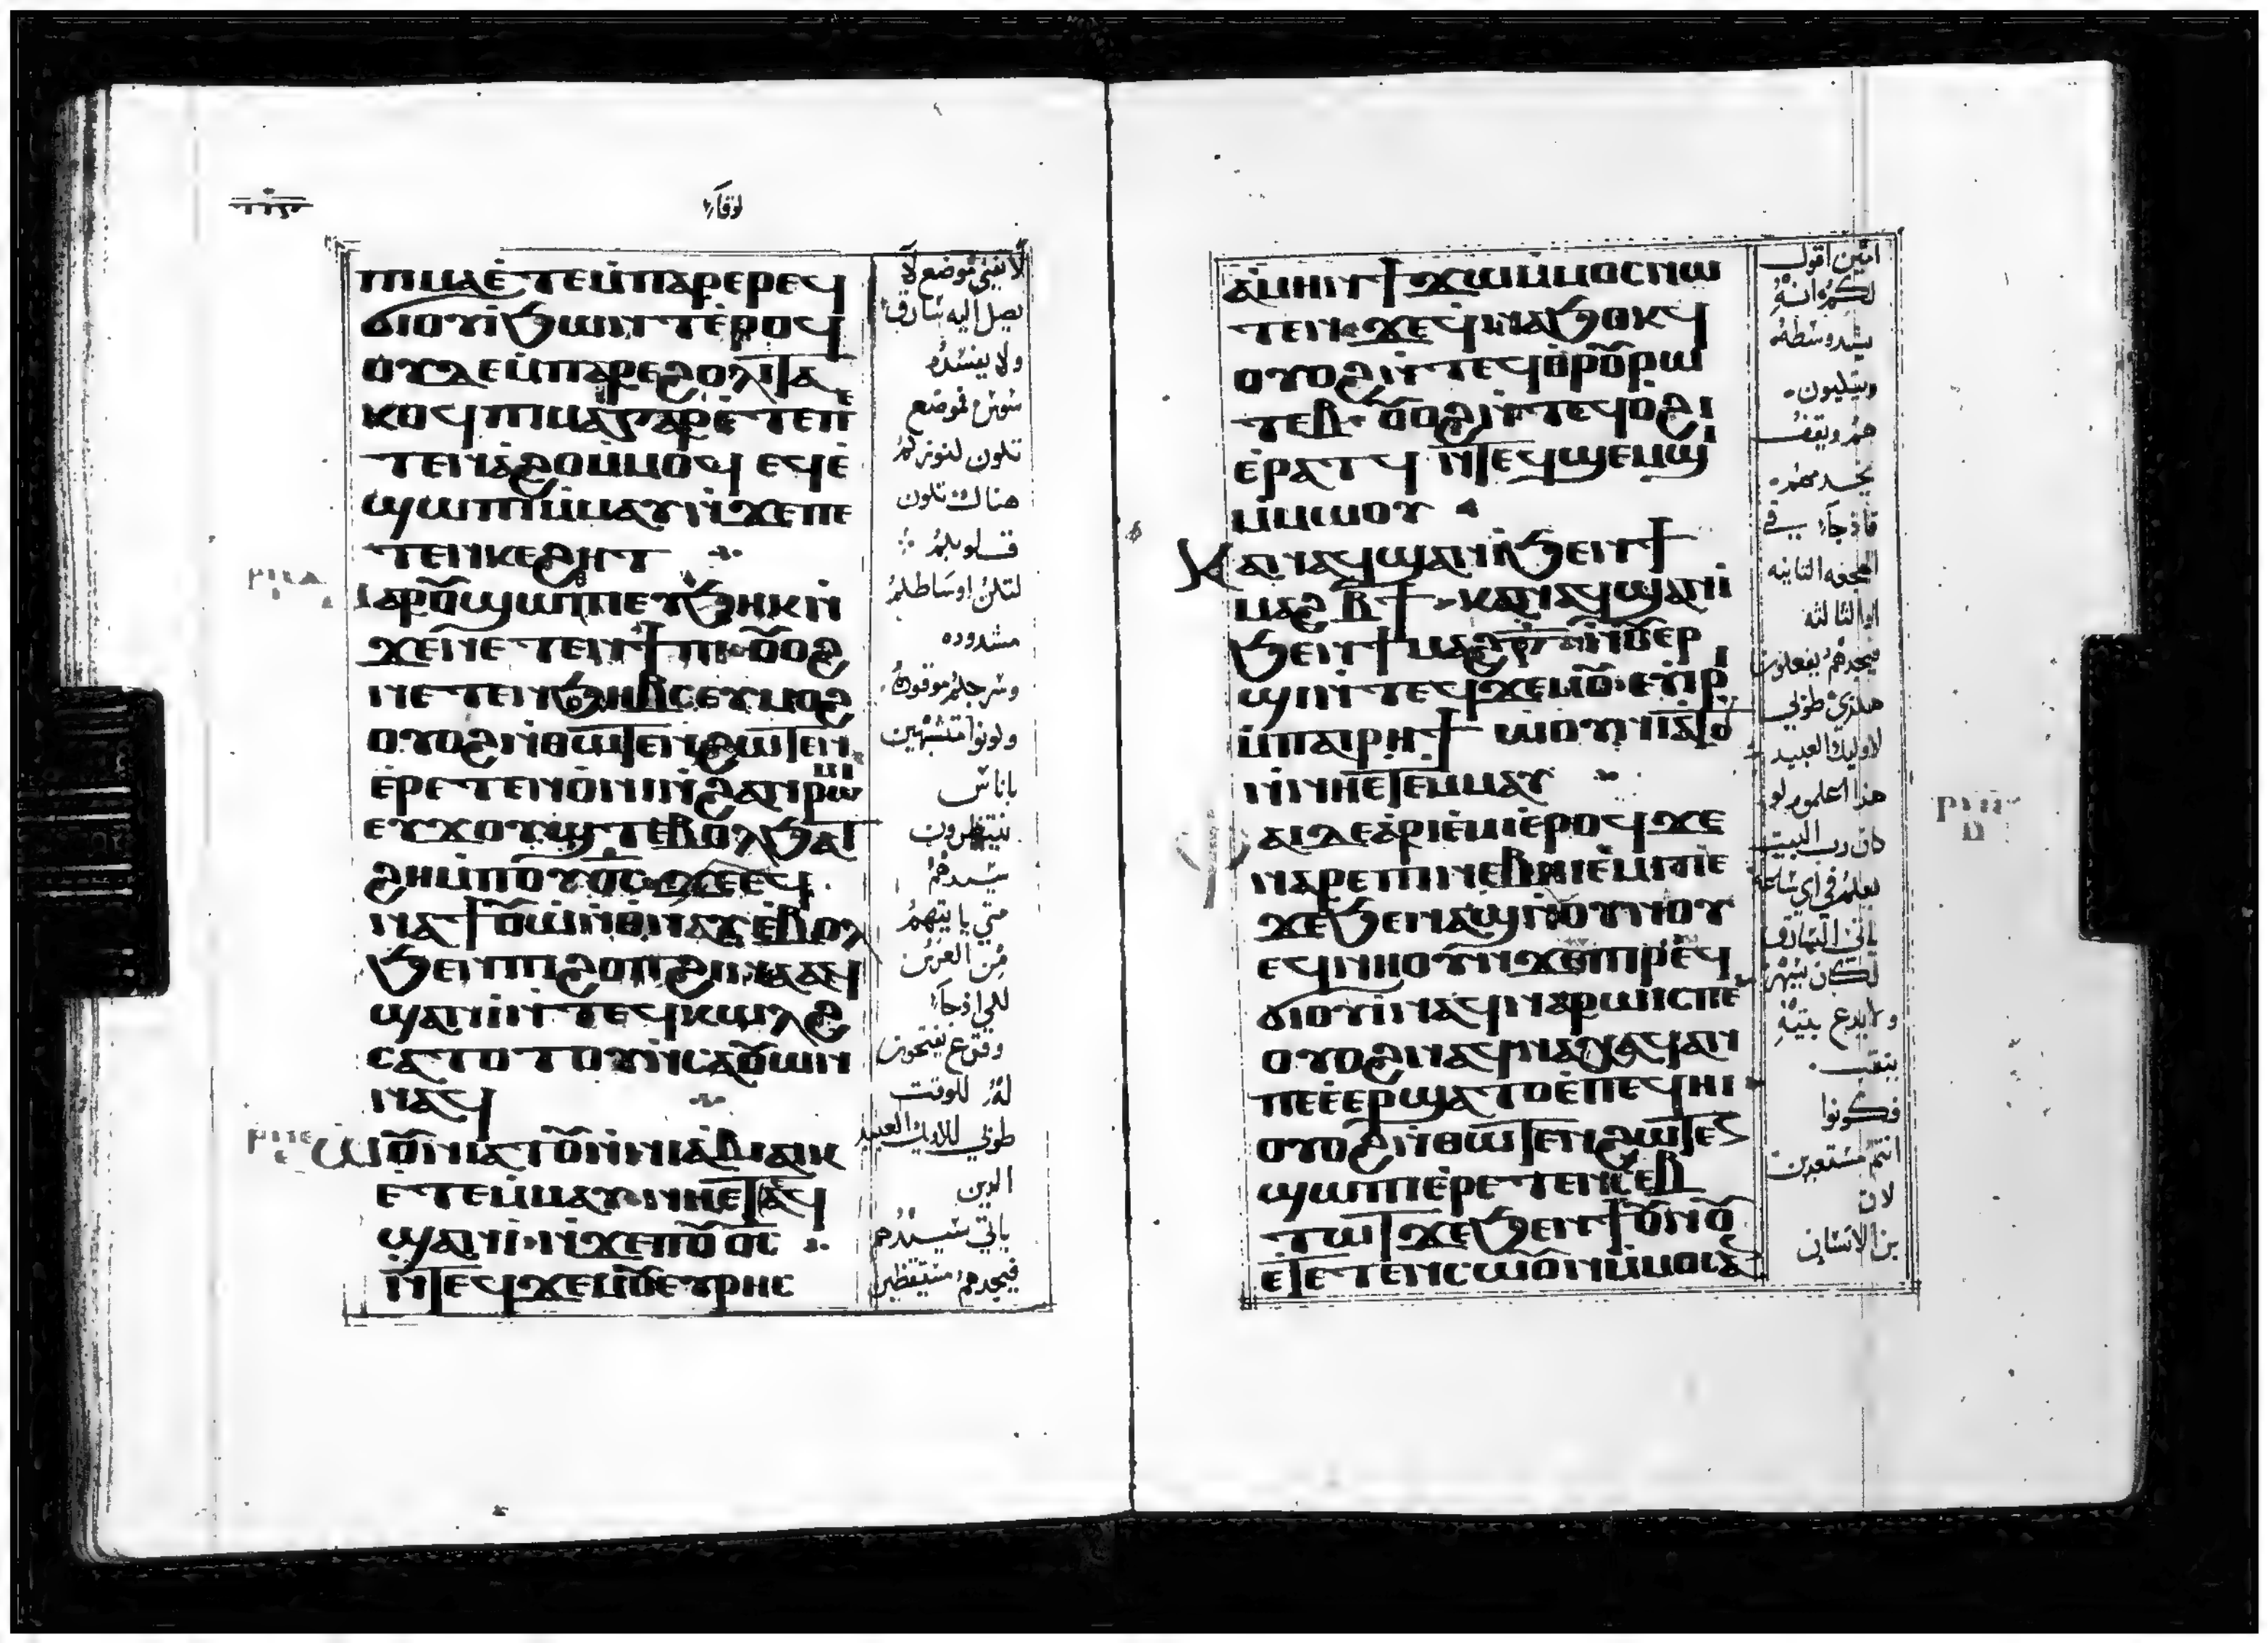 لوقا
ⲡⲓⲙⲁⲉ̀ⲧⲉⲙ̀ⲡⲁⲣⲉⲣⲉϥ
ϭⲓⲟⲩⲓ̀ϧⲱⲛⲧⲉ̀ⲣⲟϥ
ⲟⲩⲇⲉⲙ̀ⲡⲁⲣⲉϩⲟⲗⲓⲧⲁ
ⲕⲟϥⲡⲓⲙⲁⲅⲁⲣⲉ̀ⲧⲉⲡⲉ
ⲧⲉⲛⲁϩⲟⲙ̀ⲙⲟϥ ⲉϥⲉ̀
ϣⲱⲡⲓⲙ̀ⲙⲁⲩⲛ̀ϫⲉⲡⲉ
ⲧⲉⲛⲕⲉϩⲏⲧ
ⲙⲁⲣⲟⲩϣⲱⲡⲉⲩϧⲏⲕⲛ̀
ϫⲉⲛⲉⲧⲉⲛϯⲡⲓ ⲟⲩⲟϩ
ⲛⲉⲧⲉⲛϧⲏⲃⲥⲉⲩⲙⲟϩ
ⲟⲩⲟϩⲛ̀ⲑⲱⲧⲉⲛϩⲱⲧⲉⲛ
ⲉ̀ⲣⲉⲧⲉⲛⲟ̀ⲛⲓⲛ̀ϩⲁⲛⲣⲱⲙⲓ
ⲉⲩϫⲟⲩϣⲧⲉⲃⲟⲗϧⲁϫ
ϩⲏⲙ̀ⲡⲟⲩⲟ̅ⲥ̅ϫⲉⲉϥ
ⲛⲁϯⲟⲩⲱ̀ⲛ̀ⲑⲛⲁⲩⲉ̀ⲃⲟⲗ
ϧⲉⲛⲡⲓϩⲟⲡϩⲓⲛⲁⲁϥ
ϣⲁⲛⲓ̀ⲛ̀ⲧⲉϥⲕⲱⲗϩ
ⲥⲁⲧⲟⲧⲟⲩⲛ̀ⲥⲁⲟⲩⲱⲛ
ⲛⲁϥ
ⲱⲟⲩⲛⲓⲁⲧⲟⲩⲛ̀ⲛⲓⲉ̀ⲃⲓⲁⲓⲕ
ⲉⲧⲉⲙ̀ⲙⲁⲩⲛⲏⲉⲧⲁϥ
ϣⲁⲛⲓ̀ ⲛ̀ϫⲉⲡⲟⲩⲟ̅ⲥ̅
ⲛ̀ⲧⲉϥϫⲉⲙⲟⲩⲉⲩⲣⲏⲥ
لا يفنى موضع لا
يصل اليه سارق
ولا يفسده
سوس فموضع
تكون كنوزكم
هناك تكون
قلوبكم
لتكن اوساطكم
مشدوده
وسرجكم موقودة
وكونوا متشبهين
باناس
ينتظرون
سيدهم
متى ياتيهم
من العرس
لكي اذا جا
وقرع يفتحون
له للوقت
طوبى لاوليك العبيد
الدين
ياتي سيدهم
فيجدهم مستيقظين
ⲁ̀ⲙⲏⲛϯϫⲱⲙ̀ⲙⲟⲥⲛⲱ
ⲧⲉⲛ ϫⲉϥⲛⲁϧⲟⲕϥ
ⲟⲩⲟϩⲛ̀ⲧⲉϥⲑⲣⲟⲩⲣⲱ
ⲧⲉⲃ ⲟⲩⲟϩⲛ̀ⲧⲉϥⲟ̀ϩⲓ
ⲉ̀ⲣⲁⲧϥ ⲛ̀ⲧⲉϥϣⲉⲙϣⲓ
ⲙ̀ⲙⲱⲟⲩ
ⲕⲁⲛⲁϥϣⲁⲛⲓ̀ϧⲉⲛϯ
ⲙⲁϩⲃϯ ⲕⲁⲛⲁϥϣⲁⲛⲓ̀
ϧⲉⲛϯⲙⲁϩⲅ̅ϯⲛ̀ⲟⲩⲉⲣ
ϣⲓⲛ̀ⲧⲉϥϫⲉⲙⲟⲩ ⲉⲩⲓⲣⲓ
ⲙ̀ⲡⲁⲓⲣⲏϯ ⲱⲟⲩⲛⲓⲁⲧⲟⲩ
ⲛ̀ⲛⲏⲉⲧⲉⲙⲙⲁⲩ
ⲫⲁⲓⲇⲉⲁ̀ⲣⲓⲉ̀ⲙⲓⲉ̀ⲣⲟϥϫⲉ
ⲛⲁⲣⲉⲡⲓⲛⲉⲃⲏⲓⲉ̀ⲙⲓⲡⲉ
ϫⲉϧⲉⲛⲁϣⲛ̀ⲟⲩⲛⲟⲩ
ⲉϥⲛⲏⲟⲩⲛ̀ϫⲉⲡⲓⲣⲉϥ
ϭⲓⲟⲩⲓ̀ⲛⲁϥⲛⲁⲣⲱⲓⲥⲡⲉ
ⲟⲩⲟϩⲛⲁϥⲛⲁⲭⲁϥⲁⲛ
ⲡⲉⲉ̀ⲉⲣϣⲁⲧⲟⲉ̀ⲡⲉϥⲏⲓ
ⲟⲩⲟϩⲛ̀ⲑⲱⲧⲉⲛϩⲱⲧⲉⲛ
ϣⲱⲡⲓⲉ̀ⲣⲉⲧⲉⲛⲥⲉⲃ
ⲧⲱⲧ ϫⲉϧⲉⲛϯⲟⲩⲛⲟⲩ
ⲉⲧⲉⲧⲉⲛⲥⲱⲟⲩⲛⲙ̀ⲙⲟⲥⲁⲛ
امين اقول
لكم انه
يشد وسطه
ويتكيون
هم ويقف
يخدمهم
فاذا جا في
الهجعه الثانيه
او الثالثه
فيجدهم يفعلون
هكذي طوبى
لاوليك العبيد
هذا اعلموه لو
كان رب البيت
يعلم في اي ساعة
ياتي السارق
لكان يسهر
ولا يدع بيته
ينقب
فكونوا
انتم مستعدين
لان
بن الانسان